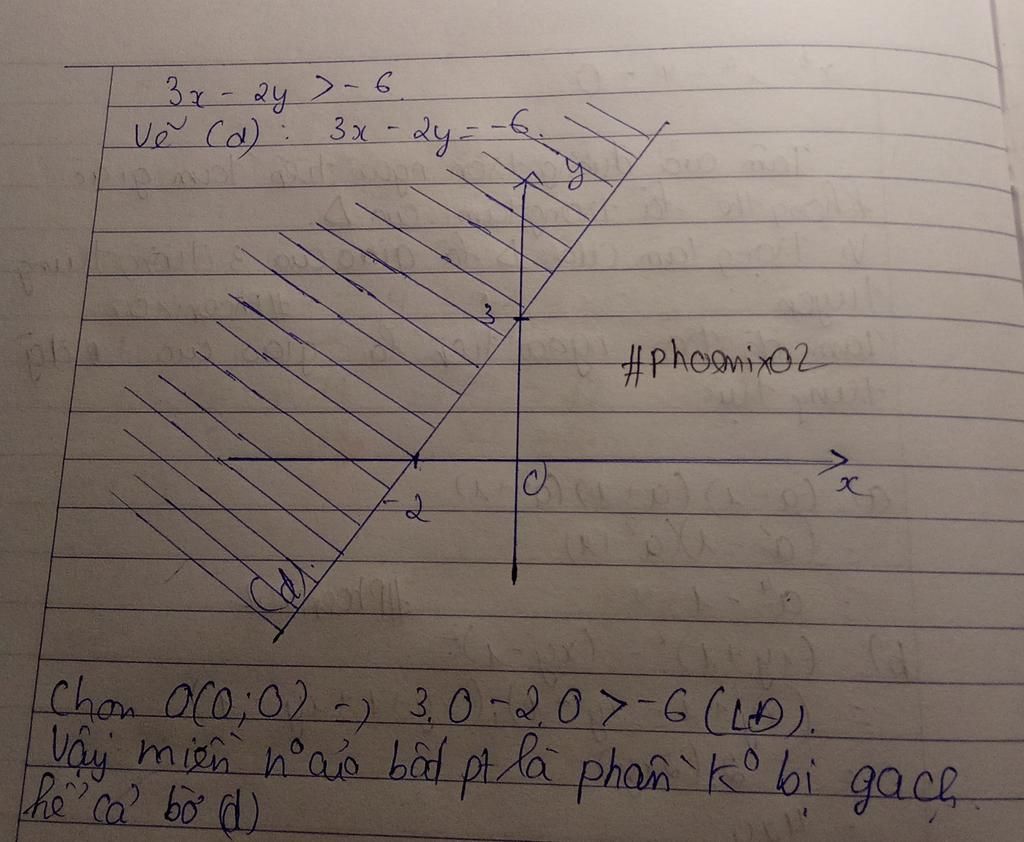 3x - 2y > -6.
Vẽ (d): 3x - 2y = -6.
y
3
#phoenix02
O
x
-2
(d)
Chọn O(0;0) → 3.0 - 2.0 > -6 (LĐ).
Vậy miền n° của bất pt là phần k° bị gạch
kể cả bờ (d)